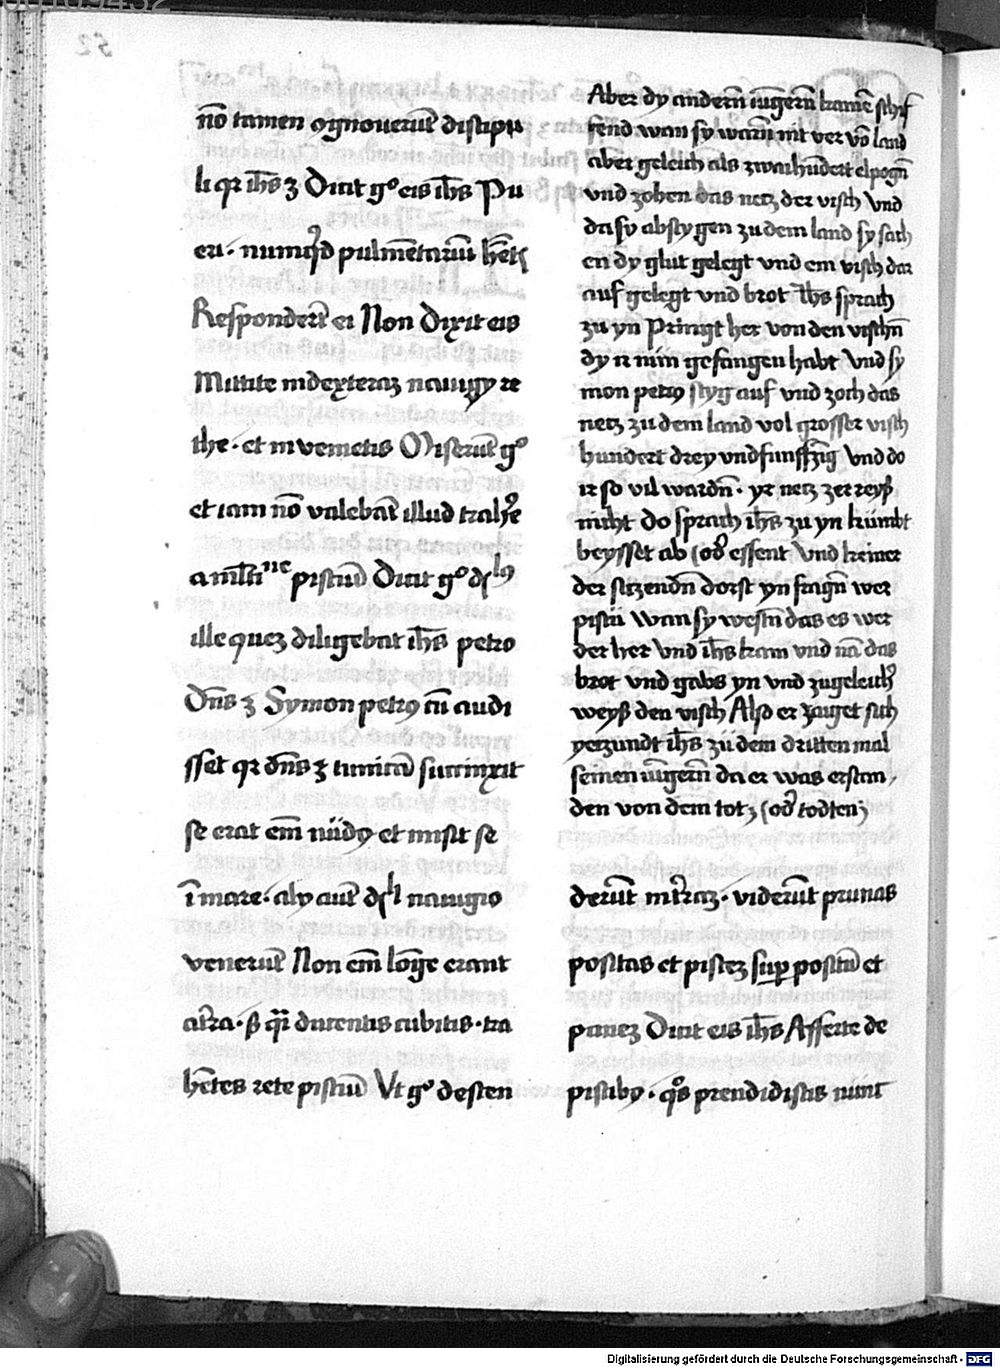 nō tamen ꝯgnouerūt discipu
li qꝛ ih̄s ʒ Dicit gͦ eis ih̄s Pu
eri · numq̇d pulmētariū hētꝭ
Responderūt ei Non Dixit eis
Mittite in dexteraꝫ nauigij re
the · et inuenietis Miserūt gͦ
et iam nō valebāt illud trahe᷑
a piscium Dicit gͦ
ille quez diligebat ih̄s petro
Dn̄s ʒ Symon petrꝯ cū audi
sset qꝛ dn̄s ʒ tunicā succinxit
se erat em̄ nudꝯ et misit se
ī mare · alij aūt nauigio
venerūt Non em̄ lōge erant
a tr̄ra · ß q̄si ducentis cubitis · tra
hētes rete pisciū Vt gͦ descen
Aber dy andern iūgern̄ kamē schif
fend wan sy warn̄ nit ver vō land
aber geleich als zwaihūdert elpogn̄
vnd zohen das netz der visch Vnd
da sy abstygen zu dem land sy sach
en dy glut gelegt vnd ein visch dar
auf gelegt vnd brot ih̄s sprach
zu yn Pringt her von den vischn̄
dy ir nun gefangen habt Vnd sy
mon petrꝯ styg auf vnd zoch das
netz zu dem land vol grosser visch
hundert drey vnd funffzig Vnd do
ir so vil wardn̄ · yr netz zerreyß
nicht do sprach ih̄s zu yn kūmbt
beysset ab (od᷑ essent Vnd keiner
der sitzendn̄ dorst yn fragn̄ wer
pistu wan sy westn̄ das es wer
der her Vnd ih̄s kam vnd nā das
brot vnd gabs yn vnd zugeleich᷑
weyß den visch Also er zaiget sich
yetzundt ih̄s zu dem dritten mal
seinen iūgern̄ da er was erstan
den von dem totz (od᷑ todten)
derūt in tr̄raꝫ · viderūt prunas
positas et piscez sup̱ positū et
panez Dicit eis ih̄s Afferte de
piscibꝯ · qͦs prendidistis nunc
Digitalisierung gefördert durch die Deutsche Forschungsgemeinschaft - DFG